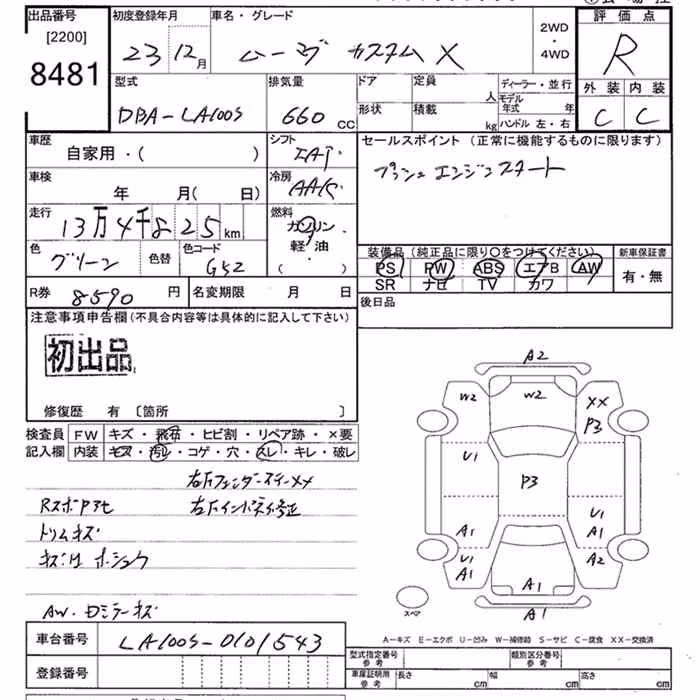 出品番号 初度登録年月 車名・グレード 2WD・4WD 評価点
[2200]
8481 23 12月 ムーヴ カスタム X R
型式 排気量 ドア 定員 人 ディーラー・並行 外装 内装
DBA-LA100S 660cc 形状 積載 kg モデル年式 年 ハンドル 左・右 C C
車歴 シフト セールスポイント (正常に機能するものに限ります)
自家用・( ) IAT プッシュエンジンスタート
車検 冷房
年 月( 日) AAC
走行 燃料
13万4千825km ガソリン 軽油 ( )
色 色替 色コード 装備品 (純正品に限り○をつけてください) 新車保証書
グリーン G52 PS PW ABS エアB AW 有・無
SR ナビ TV カワ
R券 8590円 名変期限 月 日 後日品
注意事項申告欄(不具合内容等は具体的に記入して下さい)
初出品
修復歴 有 〔箇所 〕
検査員 FW キズ・飛石・ヒビ割・リペア跡・×要
記入欄 内装 キズ・汚レ・コゲ・穴・スレ・キレ・破レ
Rスポ
トリムキズ
AW・Dミラーキズ
A2
W2 W2 XX
P3
U1 P3
U1
A1 A1
U1 A2
A1 A1
A1
スペア
A-キズ E-エクボ U-凹み W-補修跡 S-サビ C-腐食 XX-交換済
車台番号 LA100S-0101543
型式指定番号 参考 類別区分番号 参考
登録番号 車庫証明用 参考 長さ cm 幅 cm 高さ cm